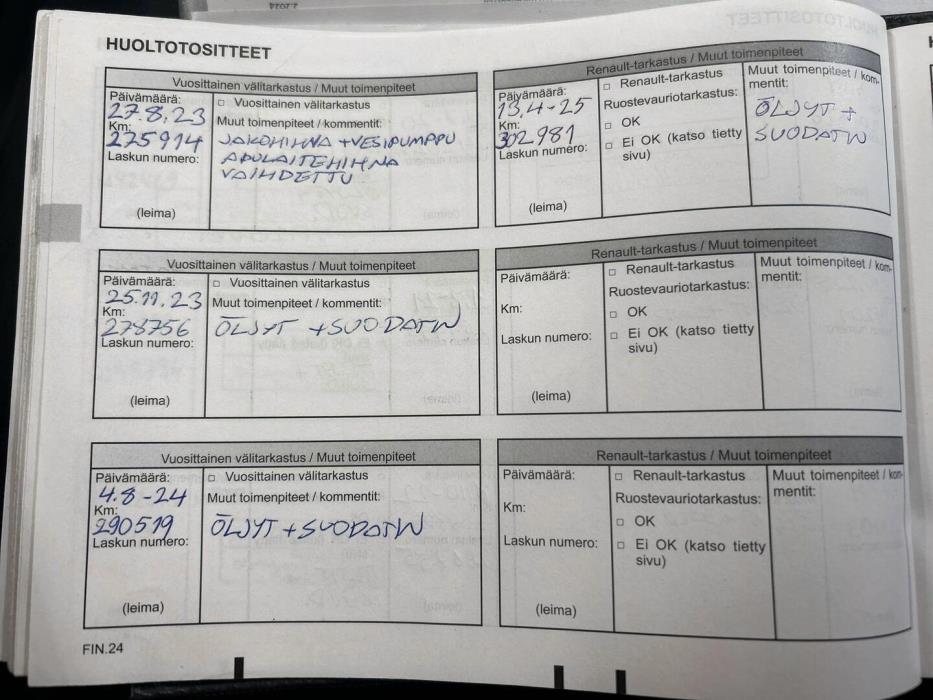 HUOLTOTOSITTEET
Vuosittainen välitarkastus / Muut toimenpiteet
Päivämäärä:
27.8,23
Km:
275914
Laskun numero:
(leima)
□ Vuosittainen välitarkastus
Muut toimenpiteet / kommentit:
JAKOHIHNA +VESIPUMPPU
APULAITEHIHNA
VAIHDETTU
Renault-tarkastus / Muut toimenpiteet
Päiyämäärä:
13.4-25
Km:
302981
Laskun numero:
(leima)
□ Renault-tarkastus
Ruostevauriotarkastus:
□ OK
□ Ei OK (katso tietty
sivu)
Muut toimenpiteet / kom-
mentit:
ÖLJYT +
SUODATIN
Vuosittainen välitarkastus / Muut toimenpiteet
Päivämäärä:
25.11.23
Km:
278756
Laskun numero:
(leima)
□ Vuosittainen välitarkastus
Muut toimenpiteet / kommentit:
ÖLJYT +SUODATIN
Renault-tarkastus / Muut toimenpiteet
Päivämäärä:
Km:
Laskun numero:
(leima)
□ Renault-tarkastus
Ruostevauriotarkastus:
□ OK
□ Ei OK (katso tietty
sivu)
Muut toimenpiteet / kom-
mentit:
Vuosittainen välitarkastus / Muut toimenpiteet
Päivämäärä:
4.8-24
Km:
290519
Laskun numero:
(leima)
□ Vuosittainen välitarkastus
Muut toimenpiteet / kommentit:
ÖLJYT +SUODATIN
Renault-tarkastus / Muut toimenpiteet
Päivämäärä:
Km:
Laskun numero:
(leima)
□ Renault-tarkastus
Ruostevauriotarkastus:
□ OK
□ Ei OK (katso tietty
sivu)
Muut toimenpiteet / kom-
mentit:
FIN.24